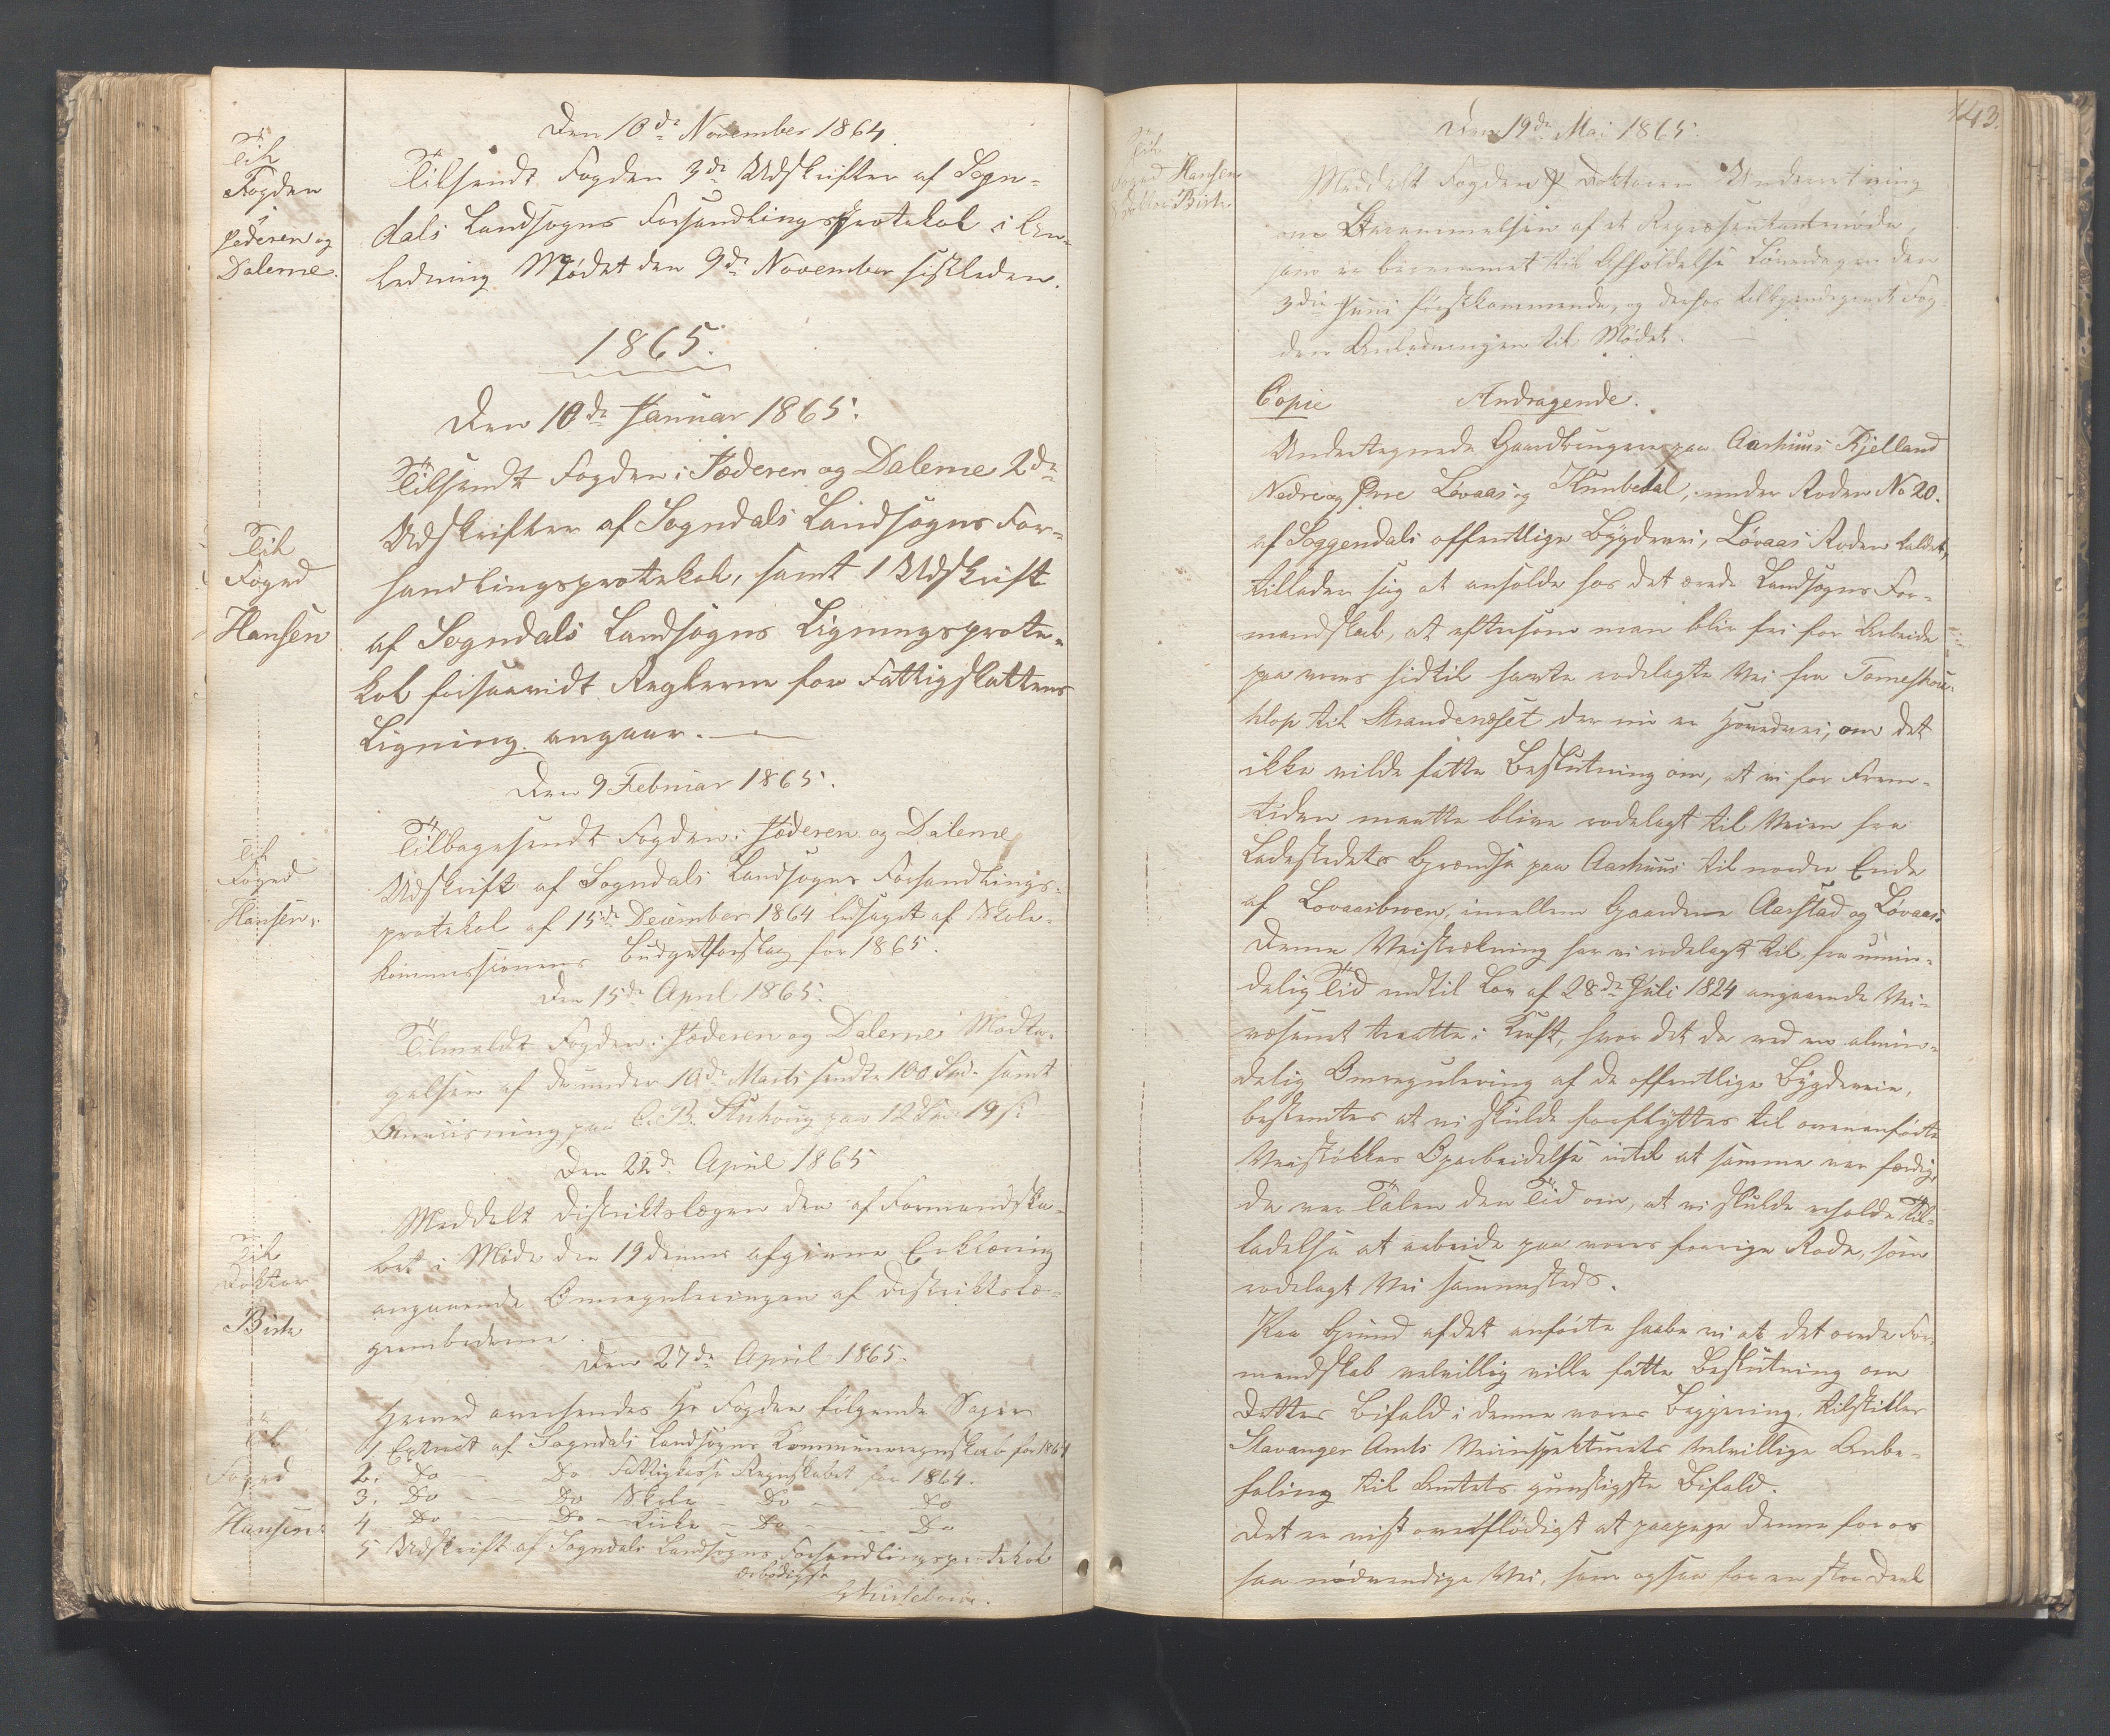 Den 10de November 1864
Til
Fogden
i
Jæderen og
Dalerne.
Tilsendt Fogden 3de Udskrifter af Sogn-
dals Landsogns Forhandlingsprotokol i An-
ledning Mødet den 9de November sistleden.
1865.
Den 10de Januar 1865.
Til
Foged
Hansen
Tilsendt Fogden i Jæderen og Dalerne 2de
Udskrifter af Sogndals Landsogns For-
handlingsprotokol, samt 1 Udskrift
af Sogndals Landsogns Ligningsproto-
kol forsaavidt Reglerne for Fattigskattens
Ligning angaar.
Den 9 Februar 1865.
Til
Foged
Hansen.
Tilbagesendt Fogden i Jæderen og Dalerne
Udskrift af Sogndals Landsogns Forhandlings-
protokol af 15de December 1864 ledsaget af Skole-
kommissionens Budgetforslag for 1865.
Den 15de April 1865.
Tilmeldt Fogden i Jæderen og Dalerne Modta-
gelsen af de under 10de Marts sendte 100 Spd. samt
Anviisning paa C. B. paa 12 Spd 19 s.
Den 22de April 1865
Til
Doktor
Birk
Meddelt Distriktslægen den af Formandska-
bet i Møde den 19 dennes afgivne Erklæring
angaaende Omreguleringen af Distriktslæ-
geembederne.
Den 27de April 1865.
Til
Foged
Hansen.
Herved oversendes Hr Fogden følgende Sager
1. Extract af Sogndals Landsogns Kommuneregnskab for 1864
2. Do — Do Fattigkasse Regnskabet for 1864.
3. Do — Do Skole — Do — Do
4 Do — Do — Kirke — Do — Do
5 Udskrift af Sogndals Landsogns Forhandlingsprotokol
Ærbødigst
143.
Den 19de Mai 1865.
Til
Foged Hansen
Doktor Birk.
Meddelt Fogden & Doktoren Underretning
om Berammelsen af et Repræsentantmøde,
som er berammet til Afholdelse Løverdagen den
3die Juni førstkommende, og derhos tilkjendegivet Fog-
den Anledningen til Mødet.
Copie Andragende.
Undertegnede Gaardbrugere paa Aarhuus Kjelland
Nedre og Øvre Løvaas og Hunbedal, under Roden No 20.
af Soggendals offentlige Bygdevei, Løvaas Roden kaldet,
tillader sig at anholde hos det ærede Landsogns For-
mandskab, at eftersom man blir fri for Arbeide
paa vores hidtil havte rodelagte Vei fra
til Strandenæset der nu er Hovedvei, om det
ikke vilde fatte Beslutning om, at vi for Frem-
tiden maatte blive rodelagt til Veien fra
Ladestedets Grændse paa Aarhuus til nordre Ende
af Lovaasbroen, imellem Gaardene Aarstad og Løvaas.
Denne Veistrækning har vi rodelagt til fra umin-
delig Tid indtil Lov af 28de Juli 1824 angaaende Vei-
væsenet traatte i Kraft, hvor det da ved en almin-
delig Omregulering af de offentlige Bygdeveie,
bestemtes at vi skulde forflyttes til ovenanførte
Veistøkkes Oparbeidelse indtil at samme var færdig,
da var Talen den Tid om, at vi skulde erholde Til-
ladelse at arbeide paa vores forrige Rode, som
rodelagt Vei sammesteds.
Paa Grund af det anførte haabe vi at det ærede For-
mandskab velvillig ville fatte Beslutning om
Dettes Bifald i denne vores Begjering, tilstiller
Stavanger Amts Veiinspekturets velvillige Anbe-
faling til Amtets gunstigste Bifald.
Det er vist overflødigt at paapege denne for os
saa nødvendige Vei, som ogsaa for en stor Deel